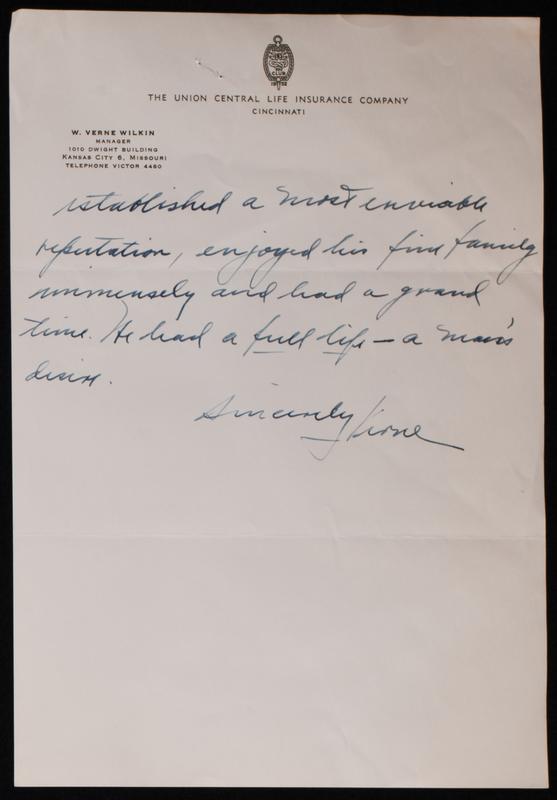 CLUB
THE UNION CENTRAL LIFE INSURANCE COMPANY
CINCINNATI
W. VERNE WILKIN
MANAGER
1010 DWIGHT BUILDING
KANSAS CITY 6, MISSOURI
TELEPHONE VICTOR 4460
established a most enviable
reputation, enjoyed his fine family
immensely and had a grand
time. He had a full life – a man's
desire.
Sincerely Verne